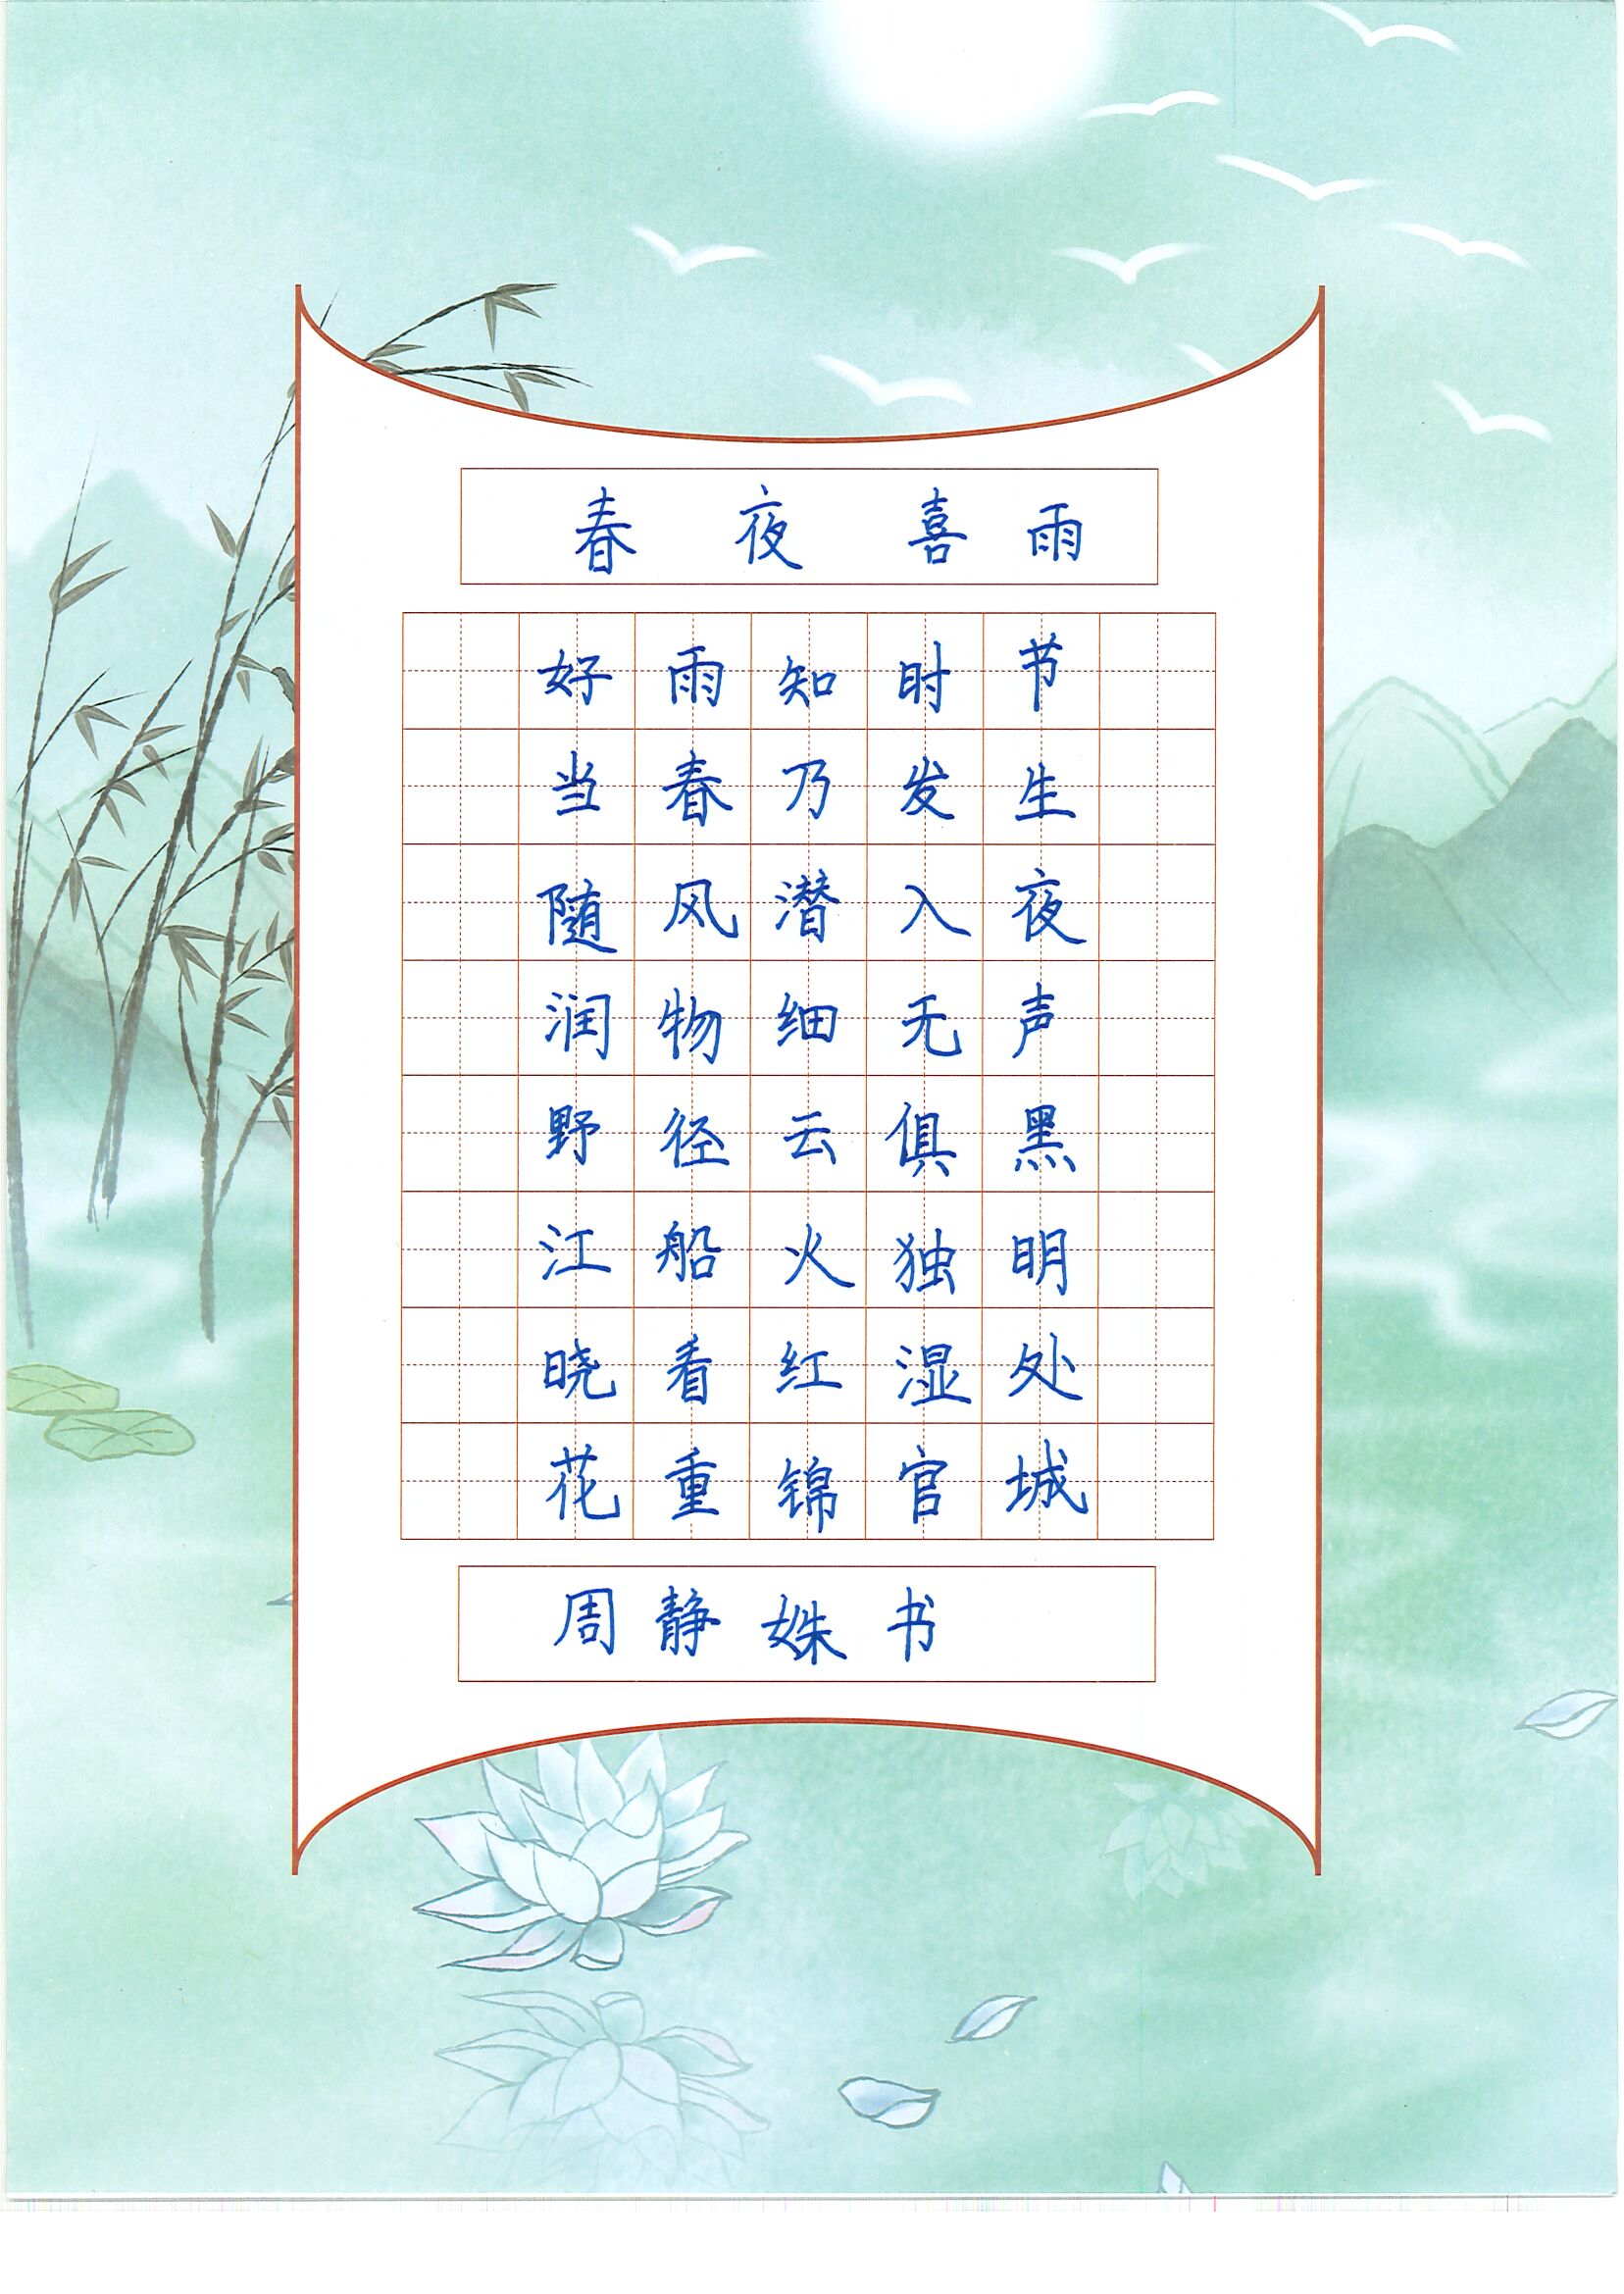 春夜喜雨
好雨知时节
当春乃发生
随风潜入夜
润物细无声
野径云俱黑
江船火独明
晓看红湿处
花重锦官城
周静姝书